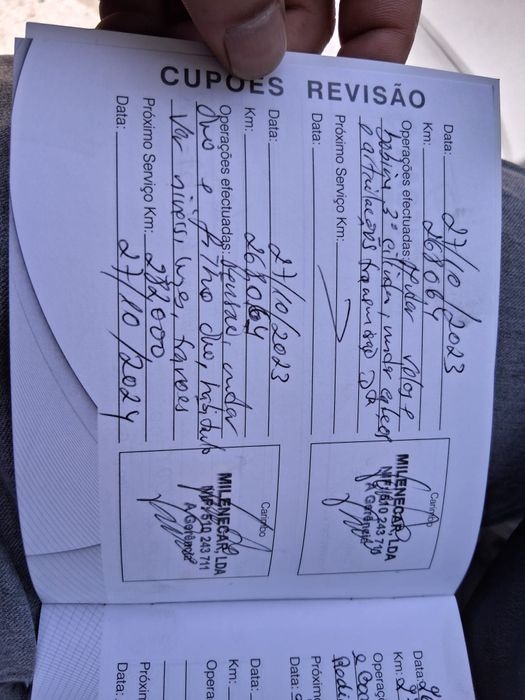 CUPÕES REVISÃO
Data: 27/10/2023
Km: 268064
Operações efectuadas: Mudar velas e
bobine 3º cilindro, mudar apoios
e articulações transmissão
Próximo Serviço Km:
Data:
Carimbo
MILENECAR, LDA
NIF: 510 243 711
A Gerência
Data: 27/10/2023
Km: 268064
Operações efectuadas: Revisão, mudar
óleo e filtro óleo, habitáculo
Ver níveis, luzes, travões
Próximo Serviço Km: 282000
Data: 27/10/2024
Carimbo
MILENECAR, LDA
NIF: 510 243 711
A Gerência
Data:
Km:
Operaç
Próxim
Data:
Data:
Km:
Opera
Próxi
Data: